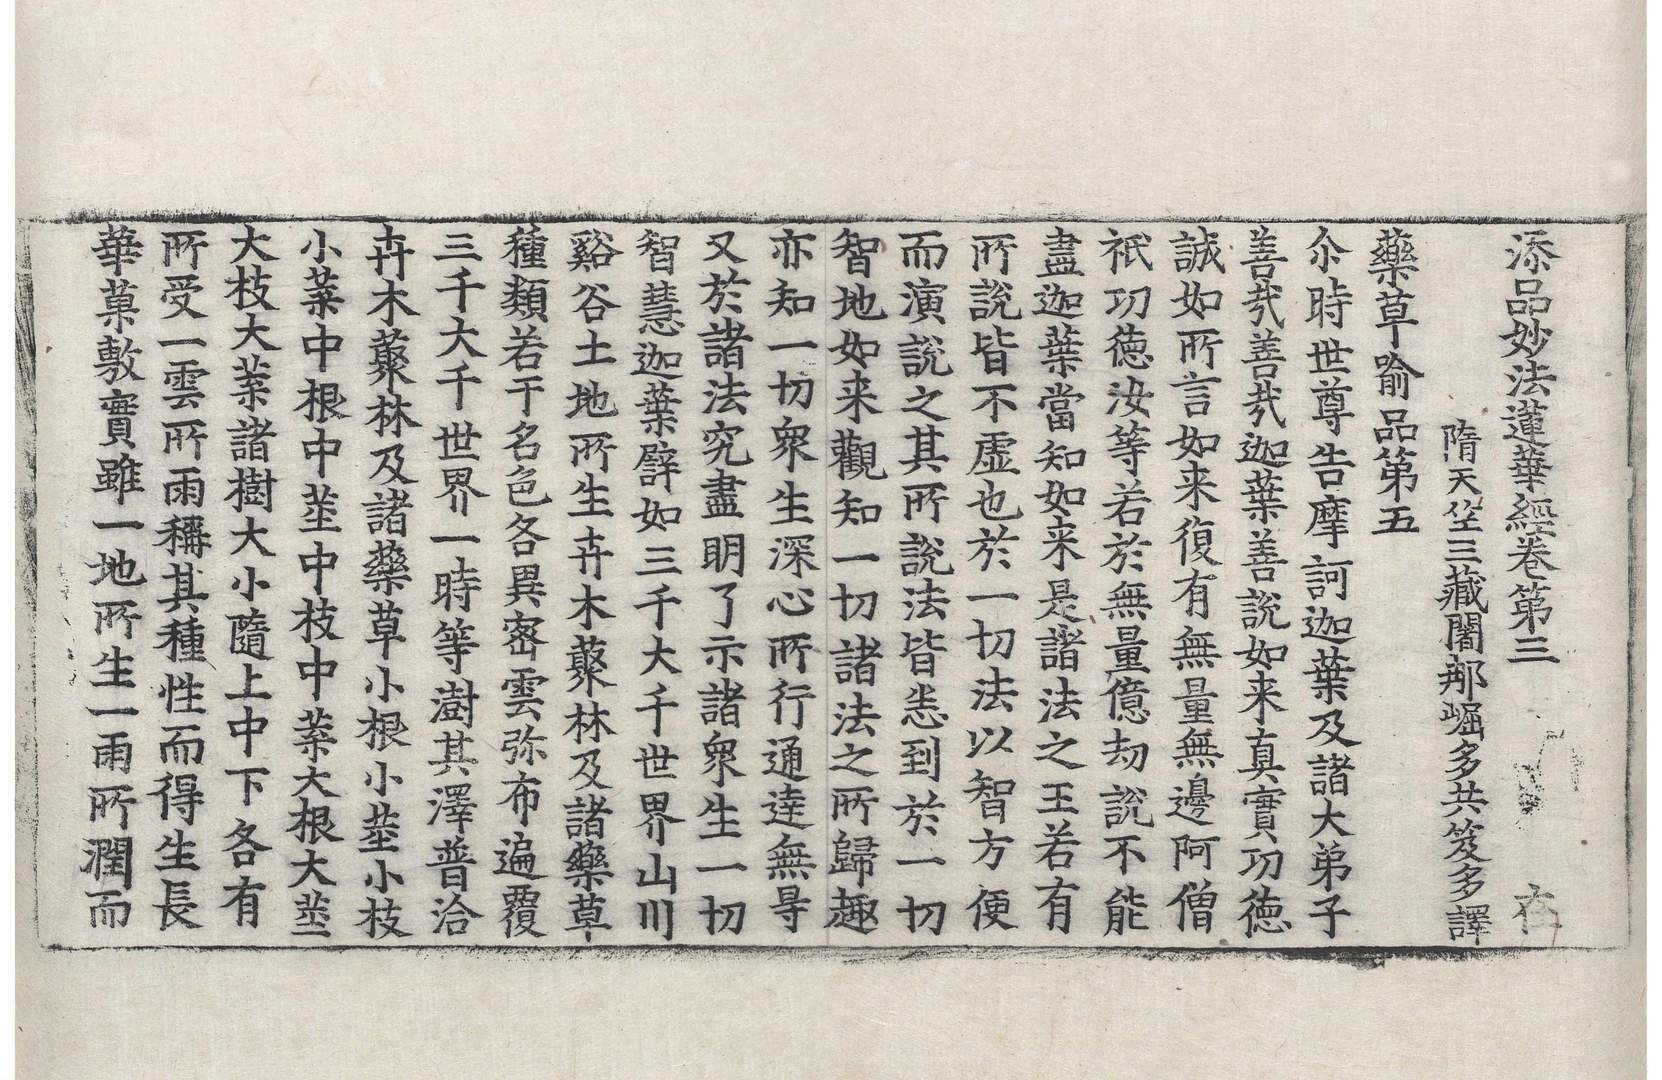 添品妙法蓮華經卷第三
隋天竺三藏闍那崛多共笈多譯
藥草喻品第五
尒時世尊告摩訶迦葉及諸大弟子
善㢤善㢤迦葉善說如来真實功徳
誠如所言如来復有無量無邊阿僧
祇功徳汝等若於無量億劫說不能
盡迦葉當知如来是諸法之王若有
所說皆不虚也於一切法以智方便
而演說之其所說法皆悉到於一切
智地如来觀知一切諸法之所歸趣
亦知一切衆生深心所行通達無㝵
又於諸法究盡明了示諸衆生一切
智慧迦葉譬如三千大千世界山川
谿谷土地所生卉木藂林及諸藥草
種類若干名色各異密雲弥布遍覆
三千大千世界一時等澍其澤普洽
卉木藂林及諸藥草小根小莖小枝
小葉中根中莖中枝中葉大根大莖
大枝大葉諸樹大小隨上中下各有
所受一雲所雨稱其種性而得生長
華菓敷實雖一地所生一雨所潤而